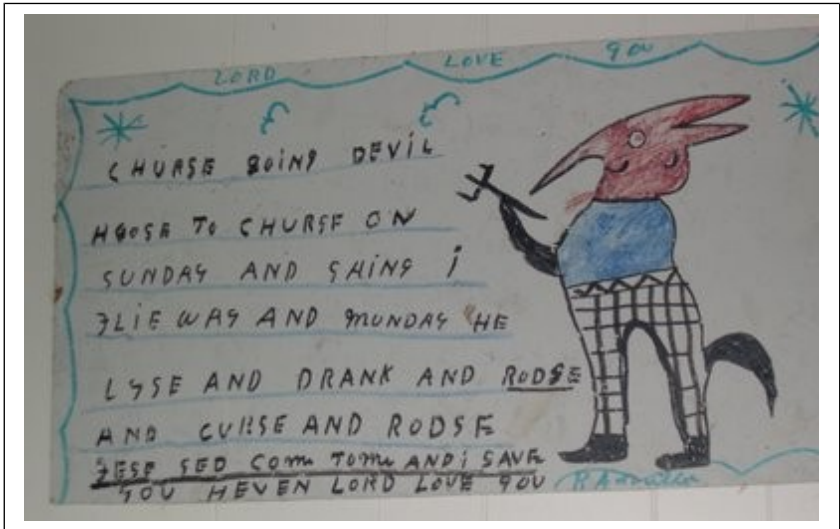 LORD LOVE YOU
CHURSE GOING DEVIL
HGOSE TO CHURSE ON
SUNDAY AND SHING i
FLIE WAY AND MUNDAY HE
LYSE AND DRANK AND RODSE
AND CURSE AND RODSE
JESE SED COM TO ME AND i SAVE
YOU HEVEN LORD LOVE YOU